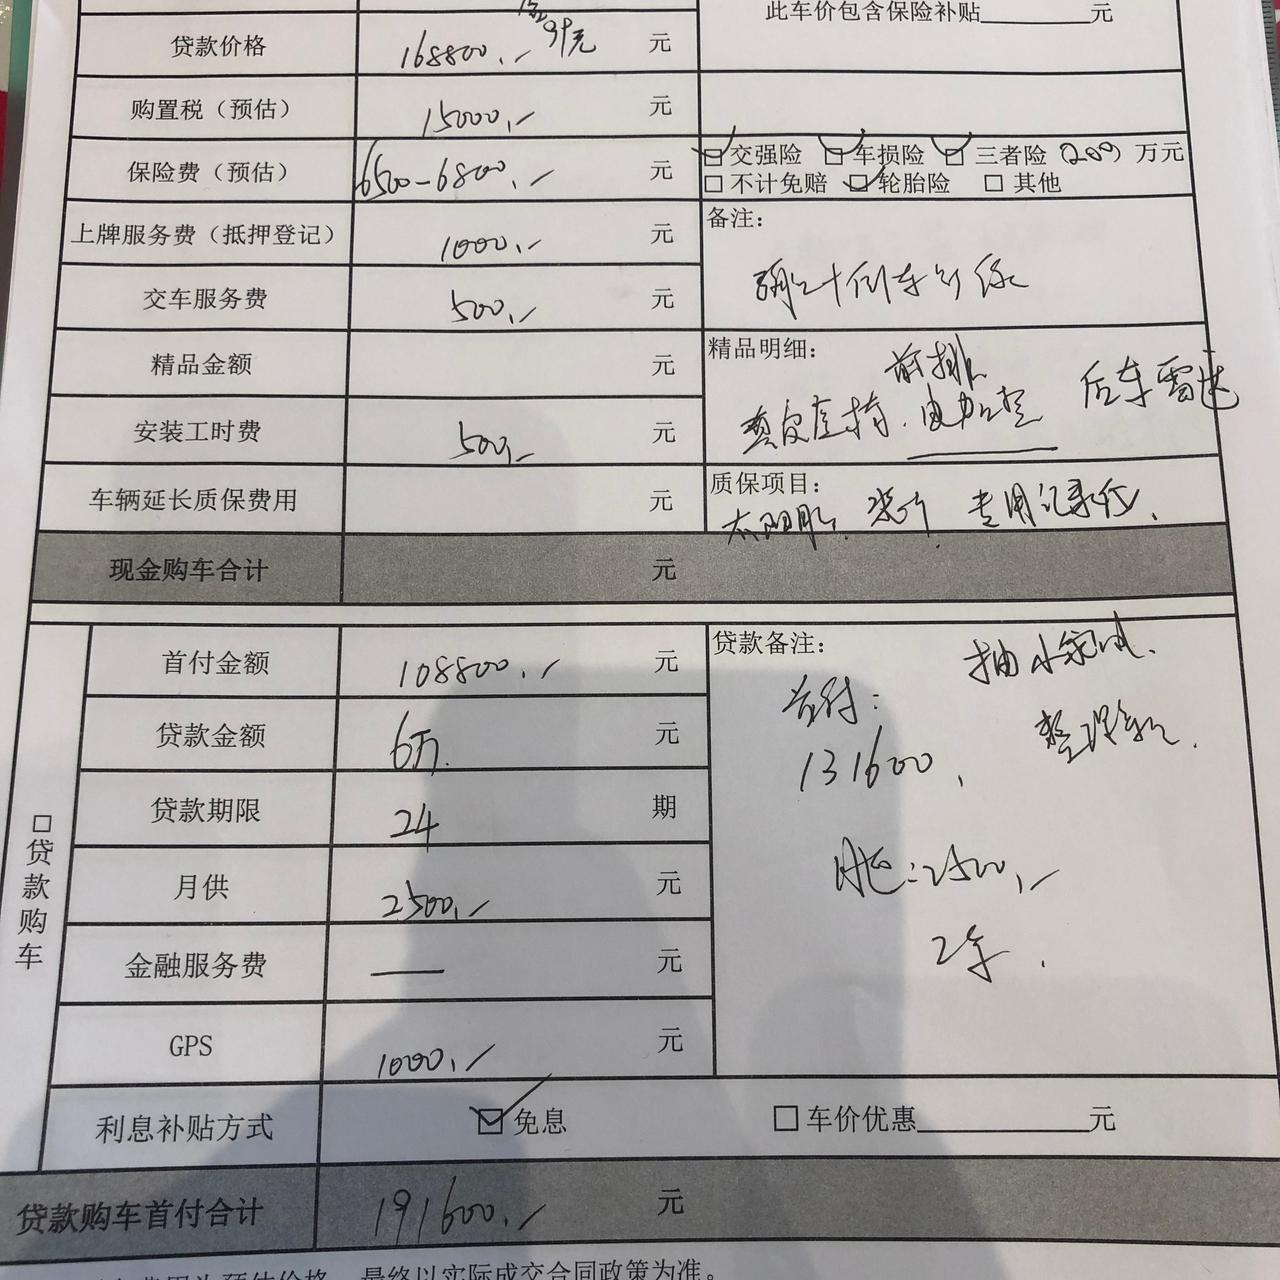 此车价包含保险补贴 元
贷款价格 168800.- 元
购置税（预估） 15000.- 元
保险费（预估） 6500-6800.- 元 交强险 车损险 三者险（200）万元
不计免赔 轮胎险 其他
上牌服务费（抵押登记） 1000.- 元 备注：
交车服务费 500.- 元
精品金额 元 精品明细：
前排
后车雷达
安装工时费 500.- 元
车辆延长质保费用 元 质保项目：
太阳膜 专用记录仪.
现金购车合计 元
贷款购车
首付金额 108800.- 元 贷款备注：
首付：
131600.
贷款金额 6万. 元
贷款期限 24 期
月供 2500.- 元
月供：2500.-
2年.
金融服务费 — 元
GPS 1000.- 元
利息补贴方式 免息 车价优惠 元
贷款购车首付合计 191600.- 元
最终以实际成交合同政策为准。